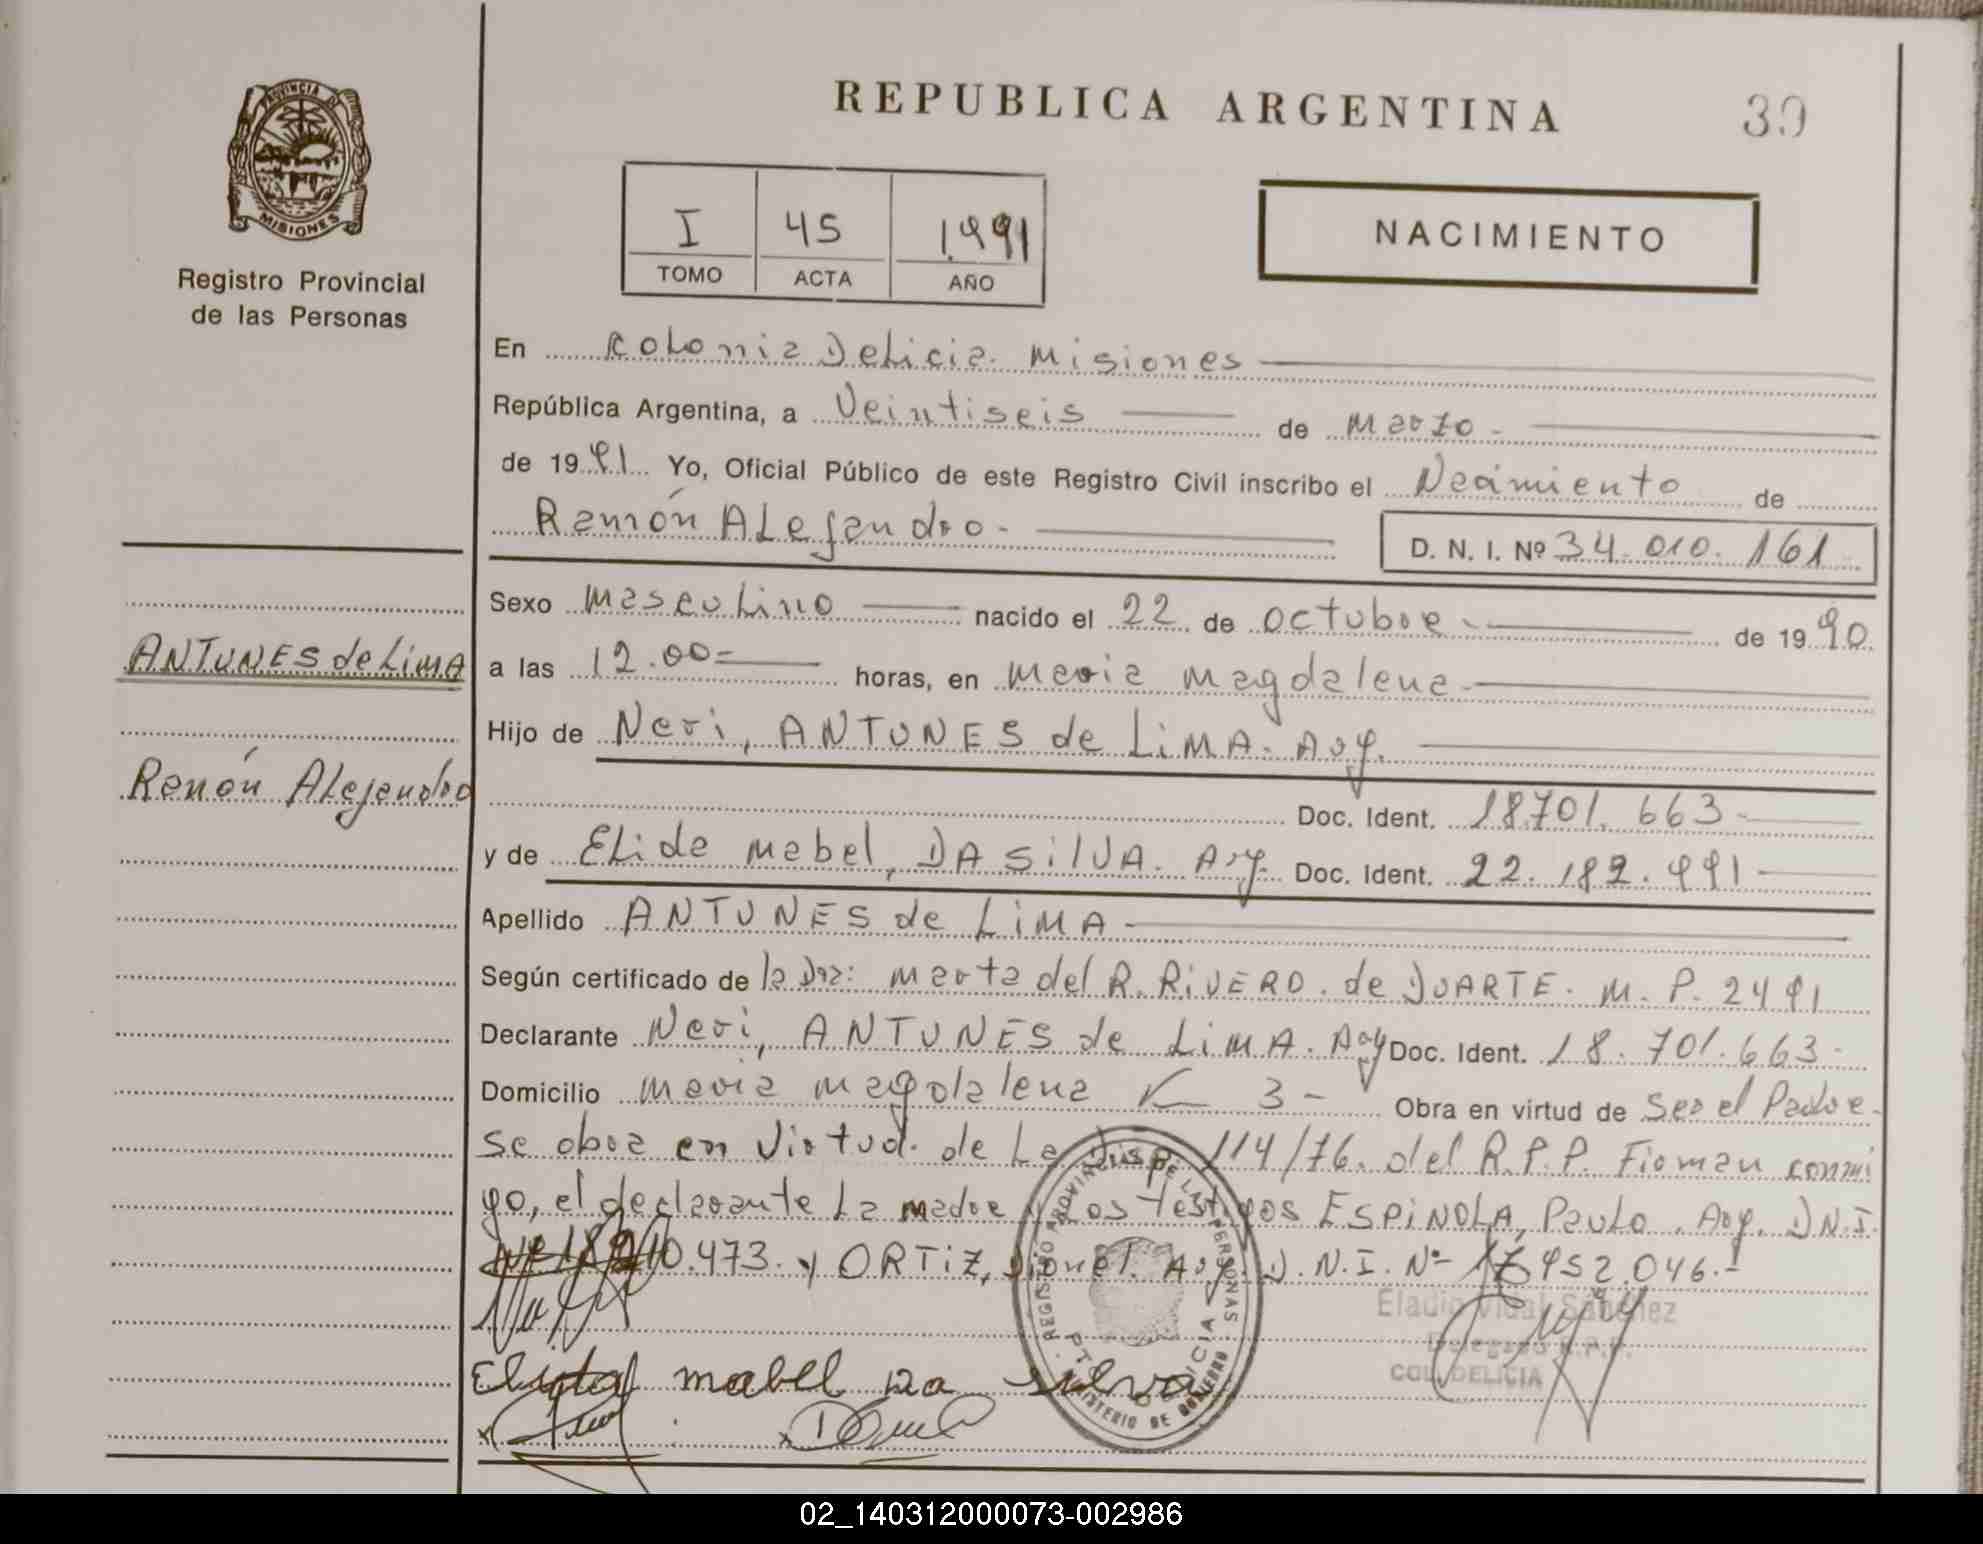 PROVINCIA DE
MISIONES
Registro Provincial
de las Personas
REPUBLICA ARGENTINA
39
I 45 1.991
TOMO ACTA AÑO
NACIMIENTO
En Colonia Delicia. Misiones
República Argentina, a Veintiseis de Marzo.
de 1991 Yo, Oficial Público de este Registro Civil inscribo el Nacimiento de
Ramón ALejandro.- D. N. I. Nº 34.010.161
Sexo MascuLino nacido el 22 de octubre.- de 1990
a las 12.00= horas, en Maria Magdalena.-
Hijo de Neri, ANTUNES de LiMA. Arg.
Doc. Ident. 18.701.663-
y de ELida Mabel, DA SiLVA. Arg. Doc. Ident. 22.182.991
Apellido ANTUNES de LiMA-
Según certificado de la Dra: Marta del R. RiVERO. de DUARTE. M. P. 2491
Declarante Neri, ANTUNES de LiMA. Arg Doc. Ident. 18.701.663-
Domicilio Maria Magdalena K 3- Obra en virtud de Ser el Padre.
se obra en Virtud. de La Disp. 114/76. del R.P.P. Firman conmi
go, el declarante La madre y Los Testigos ESPiNOLA, PauLo. Arg. D.N.I.
10.473. y ORTiZ, Arg. D.N.I. Nº 952.046.-
ANTUNES de LiMA
Ramón ALejandro
Elida mabel Da Silva
REGISTRO PROVINCIAL DE LAS PERSONAS
MINISTERIO DE GOBIERNO
PTO. DELICIA
Eladio Vidal Sánchez
Delegado R.P.P.
COL. DELICIA
02_140312000073-002986